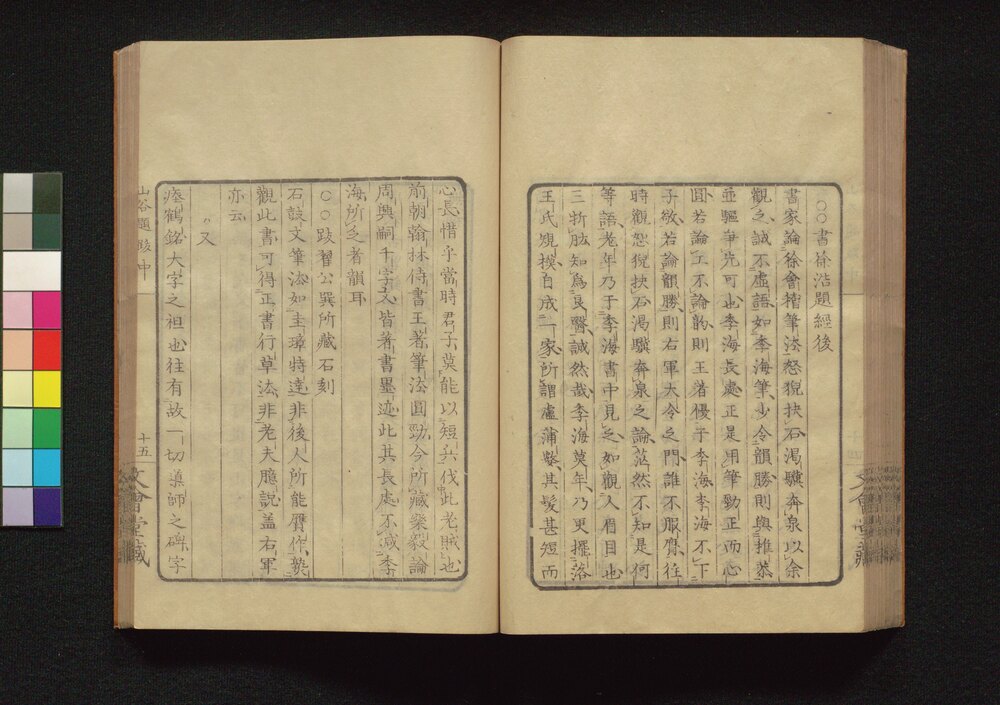 ○○書徐浩題經後
書家論徐會稽筆法怒猊抉石渴驥奔泉以余
觀之誠不虛語如季海筆少令韻勝則與稚恭
並驅爭先可也季海長處正是用筆勁正而心
圓若論工不論韵則王著優于季海季海不下
子敬若論韻勝則右軍大令之門誰不服膺往
時觀怒猊抉石渴驥奔泉之論茫然不知是何
等語老年乃于季海書中見之如觀人眉目也
三折肱知爲良醫誠然哉季海莫年乃更擺落
王氏規摸自成一家所謂盧蒲嫳其髪甚短而
心長惜乎當時君子莫能以短兵伐此老賊也
前朝翰林侍書王著筆法圓勁今所藏樂毅論
周興嗣千字文皆著書墨迹此其長處不减季
海所乏者韻耳
○○跋翟公巽所藏石刻
石鼓文筆法如圭璋特達非後人所能贋作熟
觀此書可得正書行草法非老夫臆說盖右軍
亦云
〃又
瘞鶴銘大字之祖也往有故一切導師之碑字
山谷題跋中
十五
文會堂藏